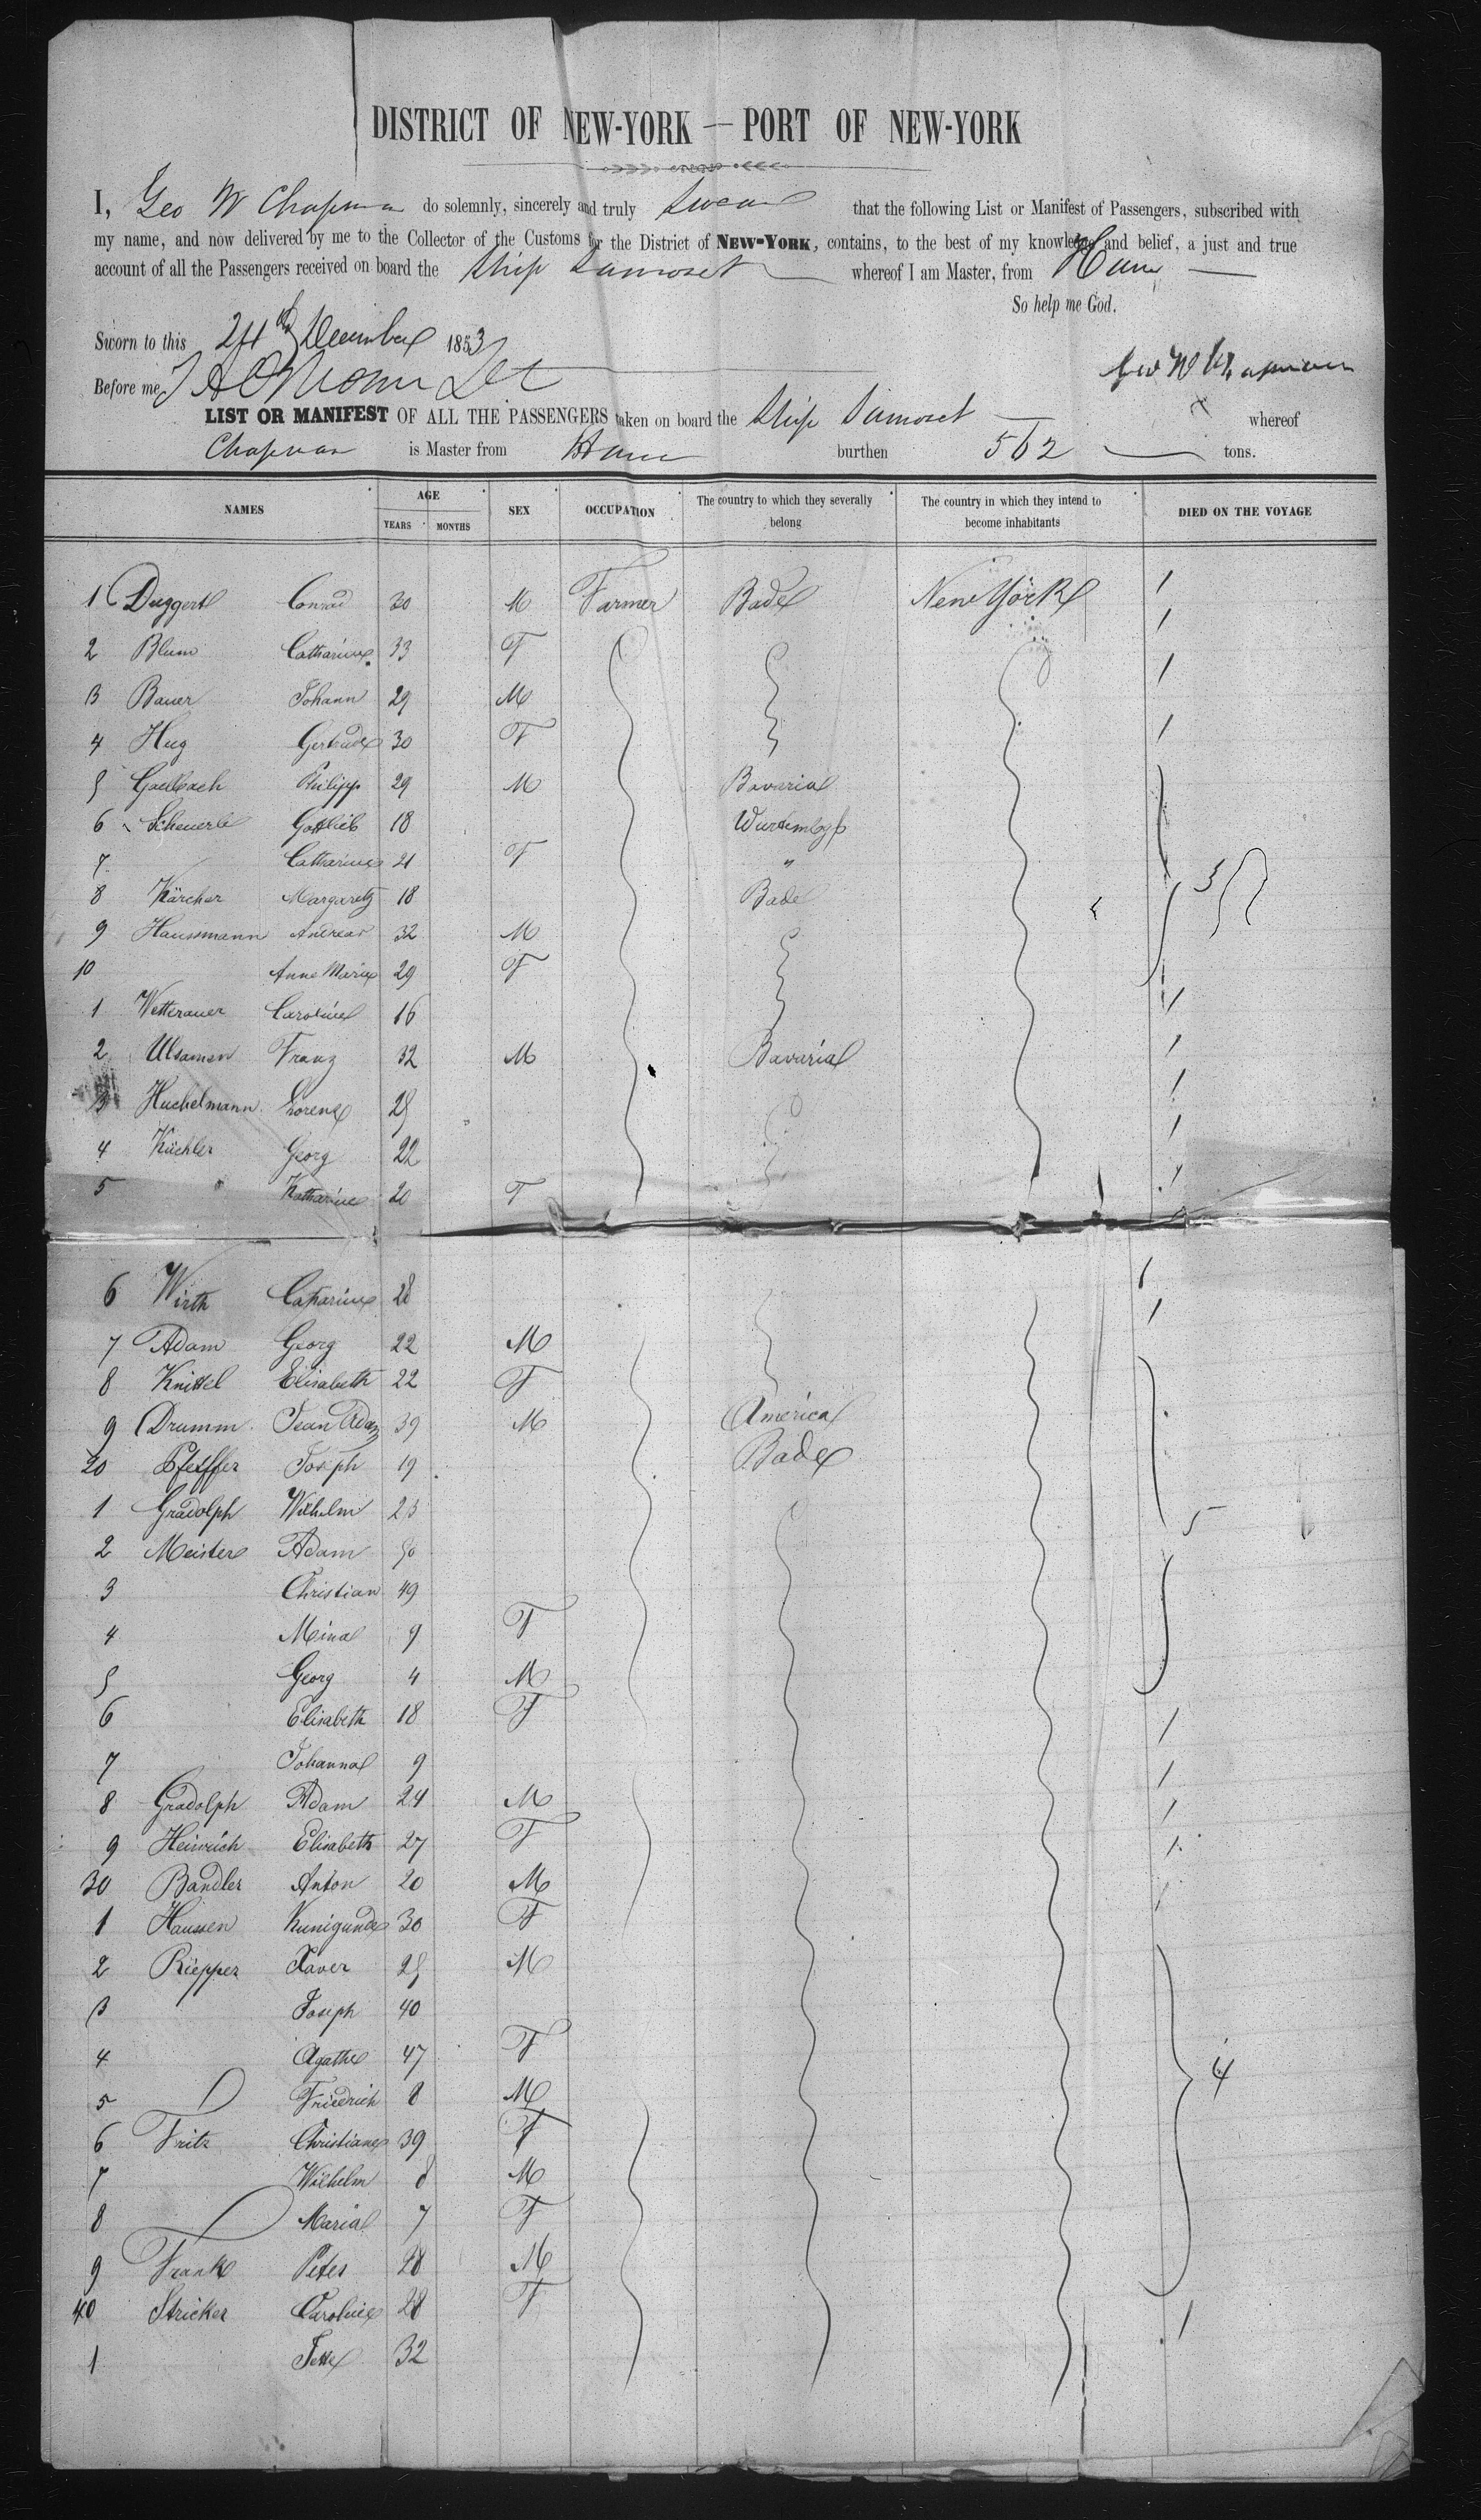 DISTRICT OF NEW-YORK — PORT OF NEW-YORK
I, Geo W Chapman do solemnly, sincerely and truly Swear that the following List or Manifest of Passengers, subscribed with
my name, and now delivered by me to the Collector of the Customs for the District of NEW-YORK, contains, to the best of my knowledge and belief, a just and true
account of all the Passengers received on board the Ship Samoset whereof I am Master, from Havre
So help me God.
Sworn to this 24th December 1853
Before me
Geo W Chapman
LIST OR MANIFEST OF ALL THE PASSENGERS taken on board the Ship Samoset whereof
Chapman is Master from Havre burthen 562 tons.
NAMES AGE YEARS MONTHS SEX OCCUPATION The country to which they severally belong The country in which they intend to become inhabitants DIED ON THE VOYAGE
1 Duggert Conrad 30 M Farmer Bade New York
2 Blum Catharine 33 F
3 Bauer Johann 29 M
4 Hug Gertrude 30 F
5 Philipp 29 M Bavaria
6 Scheuerle Gottlieb 18
7 Catharine 21 F "
8 Kärcher Margareta 18 Bade
9 Haussmann Andreas 32 M
10 Anne Marie 29 F
1 Wetterauer Caroline 16
2 Ulsamen Franz 32 M Bavaria
3 Huchelmann Lorenz 25
4 Küchler Georg 22
5 " Katharine 20 F
6 Wirth Catharine 28
7 Adam Georg 22 M
8 Knittel Elisabeth 22 F
9 Drumm Jean Adam 39 M America
20 Pfeiffer Joseph 19 Bade
1 Gradolph Wilhelm 23
2 Meister Adam 50
3 Christian 49
4 Mina 9 F
5 Georg 4 M
6 Elisabeth 18 F
7 Johanna 9
8 Gradolph Adam 24 M
9 Heinrich Elisabeth 27 F
30 Bandler Anton 20 M
1 Haussen Kunigunde 30 F
2 Riepper Xaver 25 M
3 Joseph 40
4 Agathe 47 F 4
5 Friedrich 8 M
6 Fritz Christiane 39 F
7 Wilhelm 8 M
8 Maria 7 F
9 Frank Peter 28 M
40 Stricker Caroline 28 F
1 32